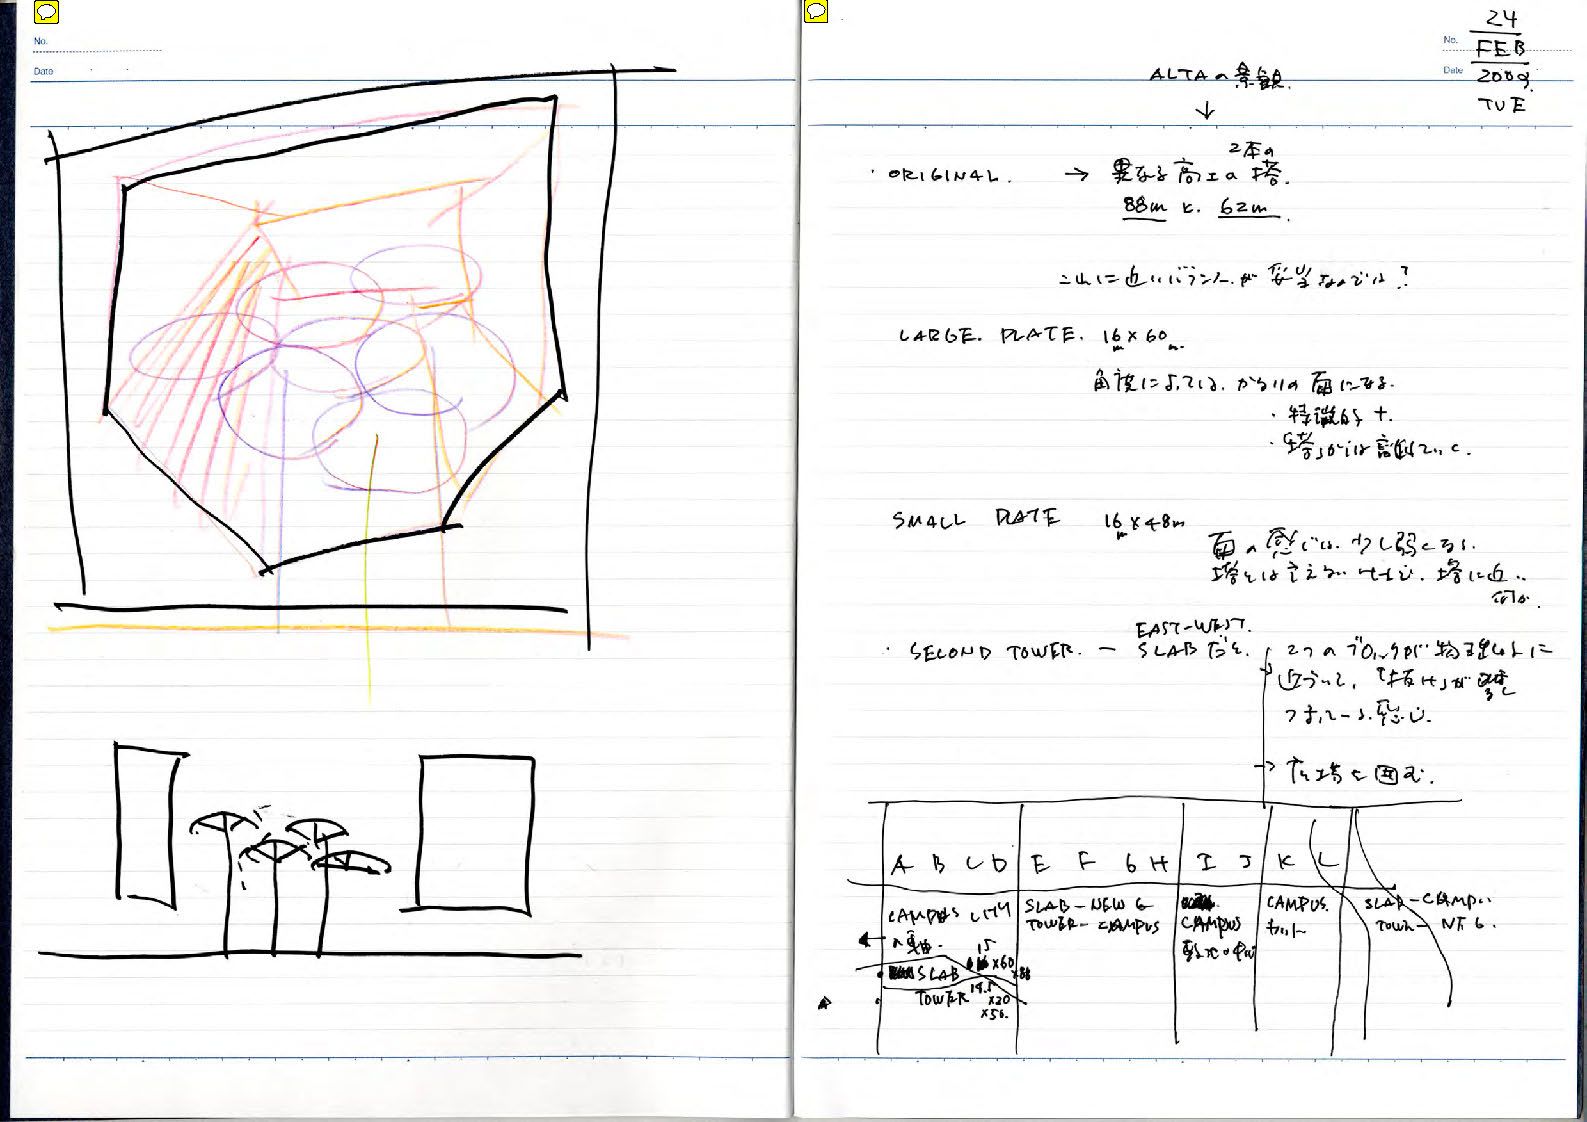 No.
Date
No.
Date
24
FEB
2009.
TUE
ALTAの景観.
↓
・ORIGINAL. → 異なる高さの 2本の 塔.
88m と. 62m.
これに近いバランスが妥当なのでは?
LARGE. PLATE. 16m×60m.
角度によっては. かなりの面になる.
・特徴的
・「塔」からは離れていく.
SMALL PLATE 16m×48m
面の感じは. 少し弱くなる.
塔とは言えないけれど. 塔に近い
何か.
・SECOND TOWER. — EAST-WEST. SLABだと.
2つのブロックが物理的に
近づいて, 「抜け」が
感じ.
→ 広場を囲む.
A B C D E F G H I J K L
CAMPUS CITY
SLAB-NEW G
TOWER-CAMPUS
CAMPUS
CAMPUS.
カット
SLAB-CAMPUS
TOWER-NEG.
SLAB 15 ×60 ×88
TOWER 19.5 ×20 ×56.